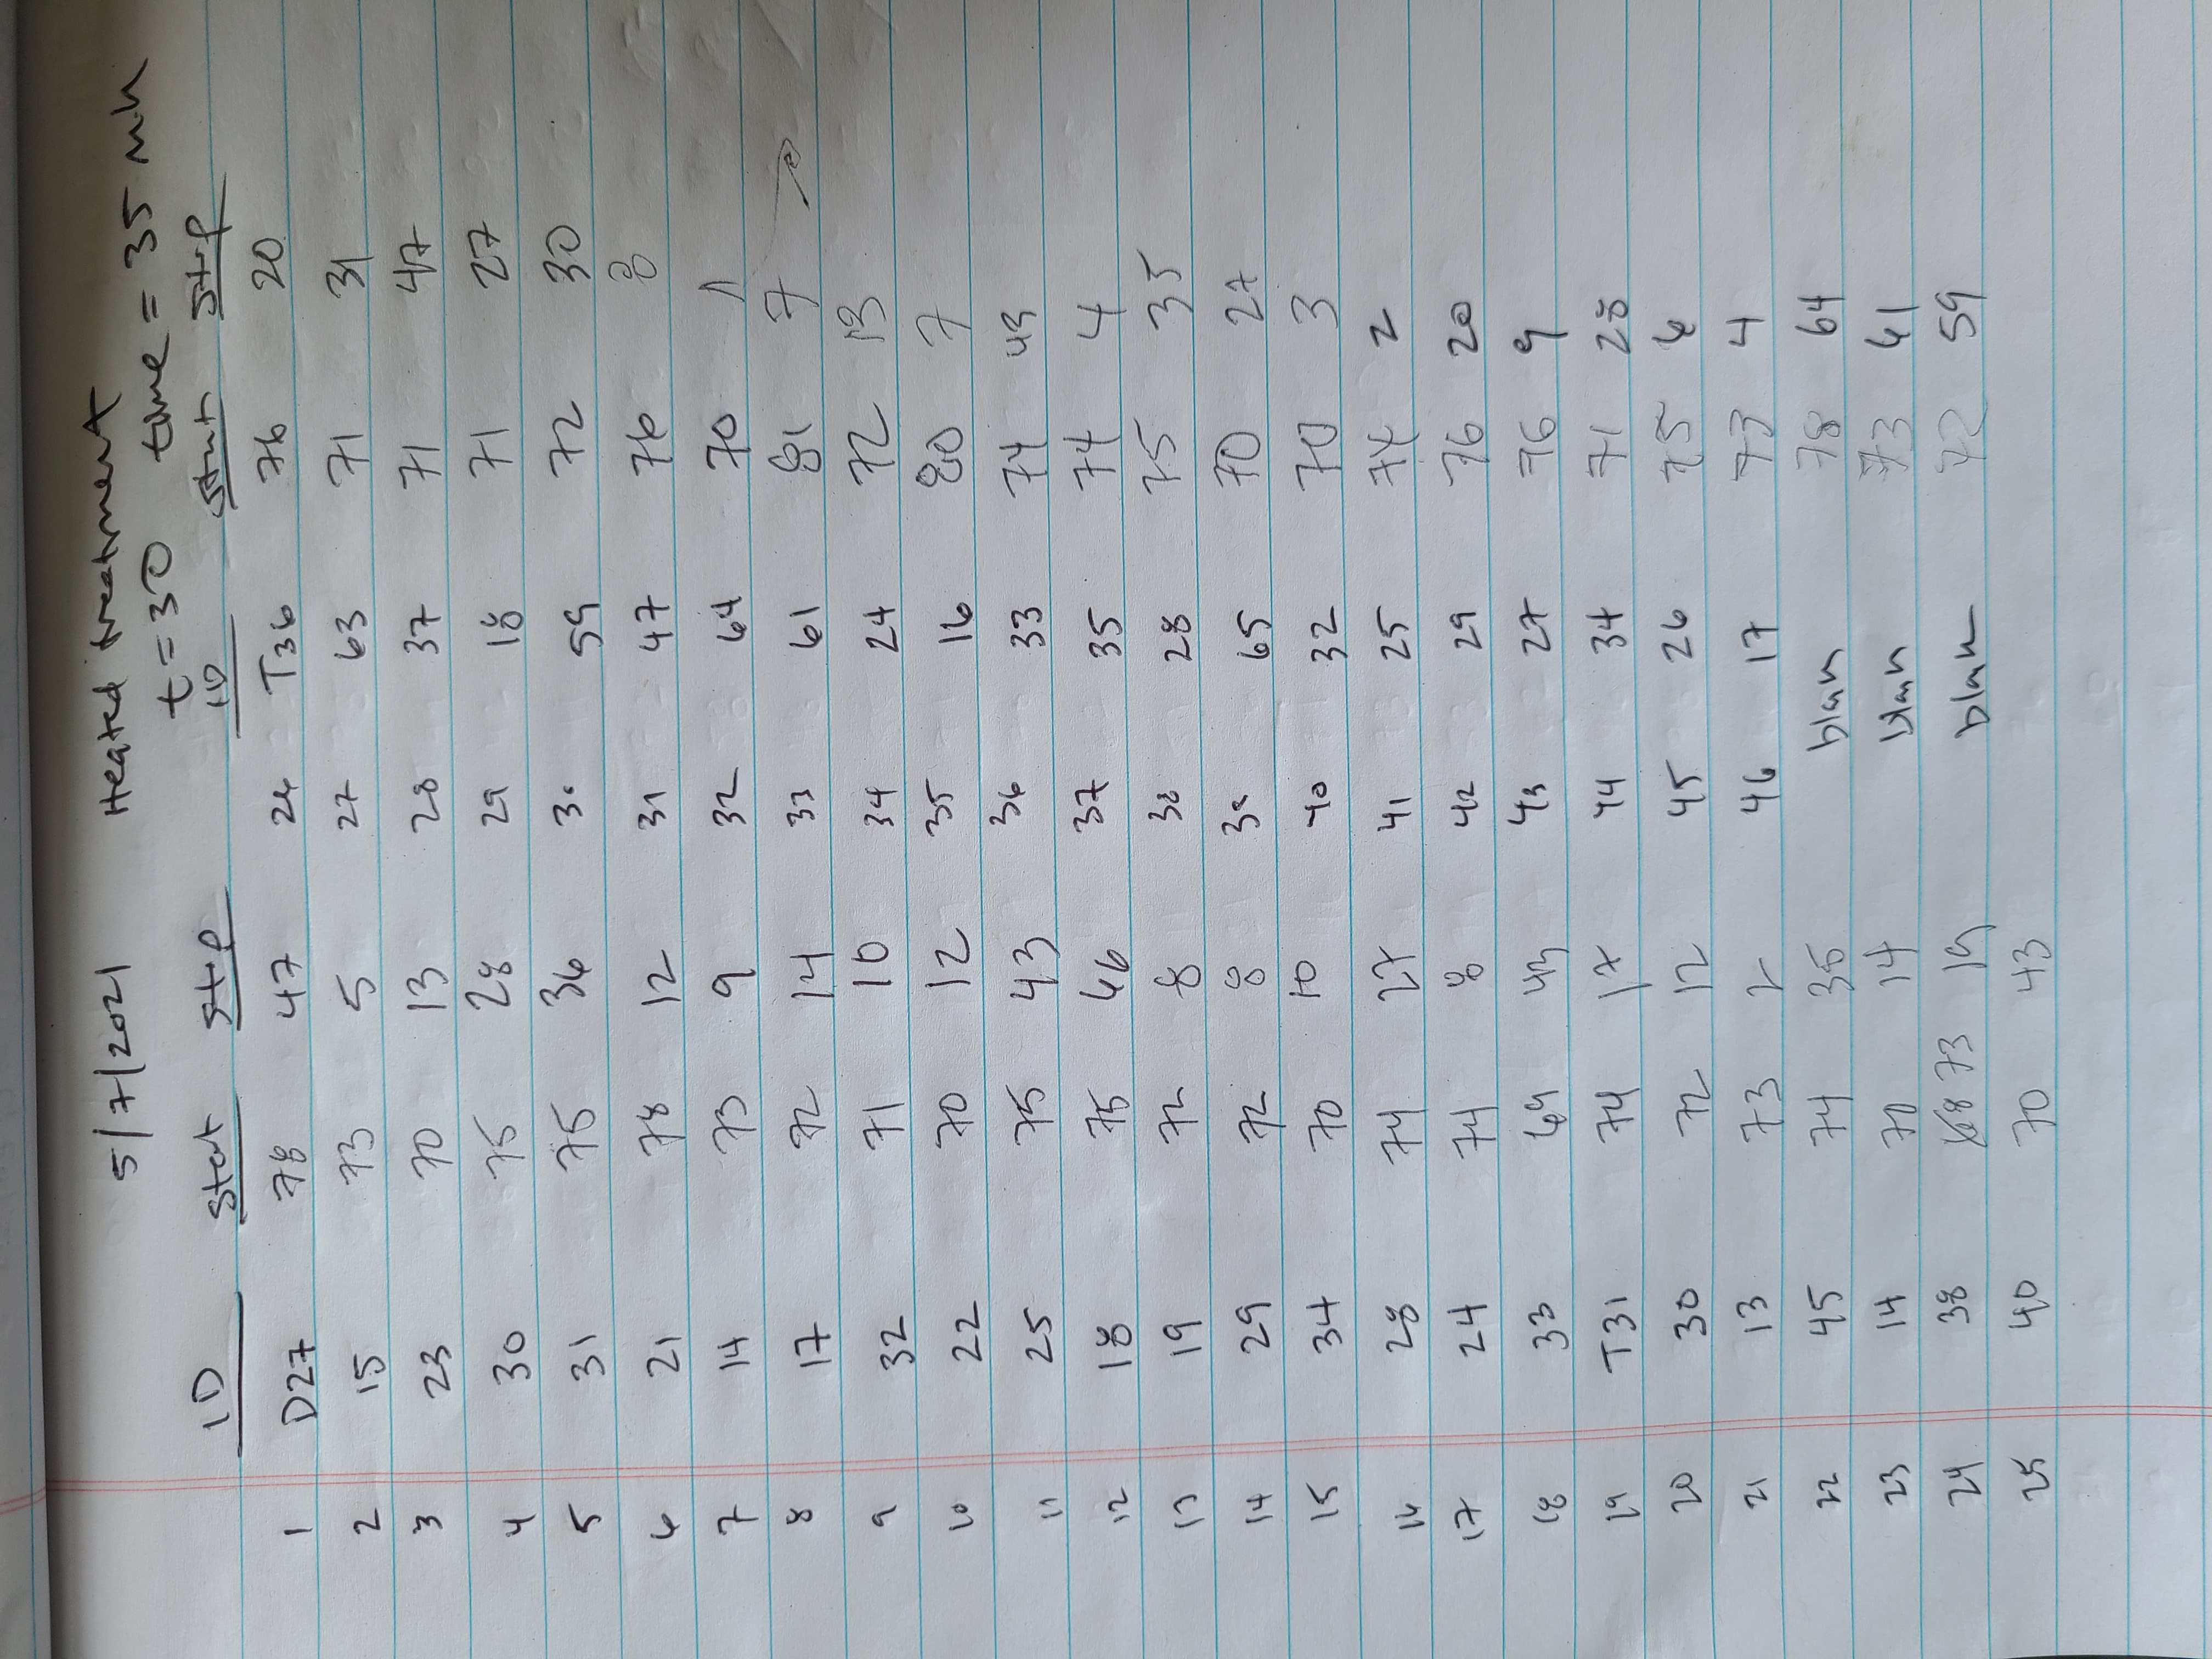 5/7/2021 Heated treatment
t = 30 time = 35 min
ID Start Stop ID Start Stop
1 D27 78 47 26 T36 76 20
2 15 73 5 27 63 71 31
3 23 70 13 28 37 71 47
4 30 75 28 29 18 71 27
5 31 75 36 30 59 72 30
6 21 78 12 31 47 76 8
7 14 73 9 32 64 70
8 17 72 14 33 61 81 7
9 32 71 10 34 24 72 13
10 22 70 12 35 16 80 7
11 25 75 43 36 33 74 43
12 18 75 37 35 74 4
13 19 72 8 38 28 75 35
14 29 72 8 39 65 70 27
15 34 70 10 40 32 70 3
16 28 74 27 41 25 74 2
17 24 74 8 42 29 76 20
18 33 69 43 43 27 76 9
19 T31 74 17 44 34 71 28
20 30 72 12 45 26 75 6
21 13 73 2 46 17 73 4
22 45 74 35 blank 78 64
23 14 70 14 blank 73 61
24 38 68 73 19 blank 72 59
25 40 70 43